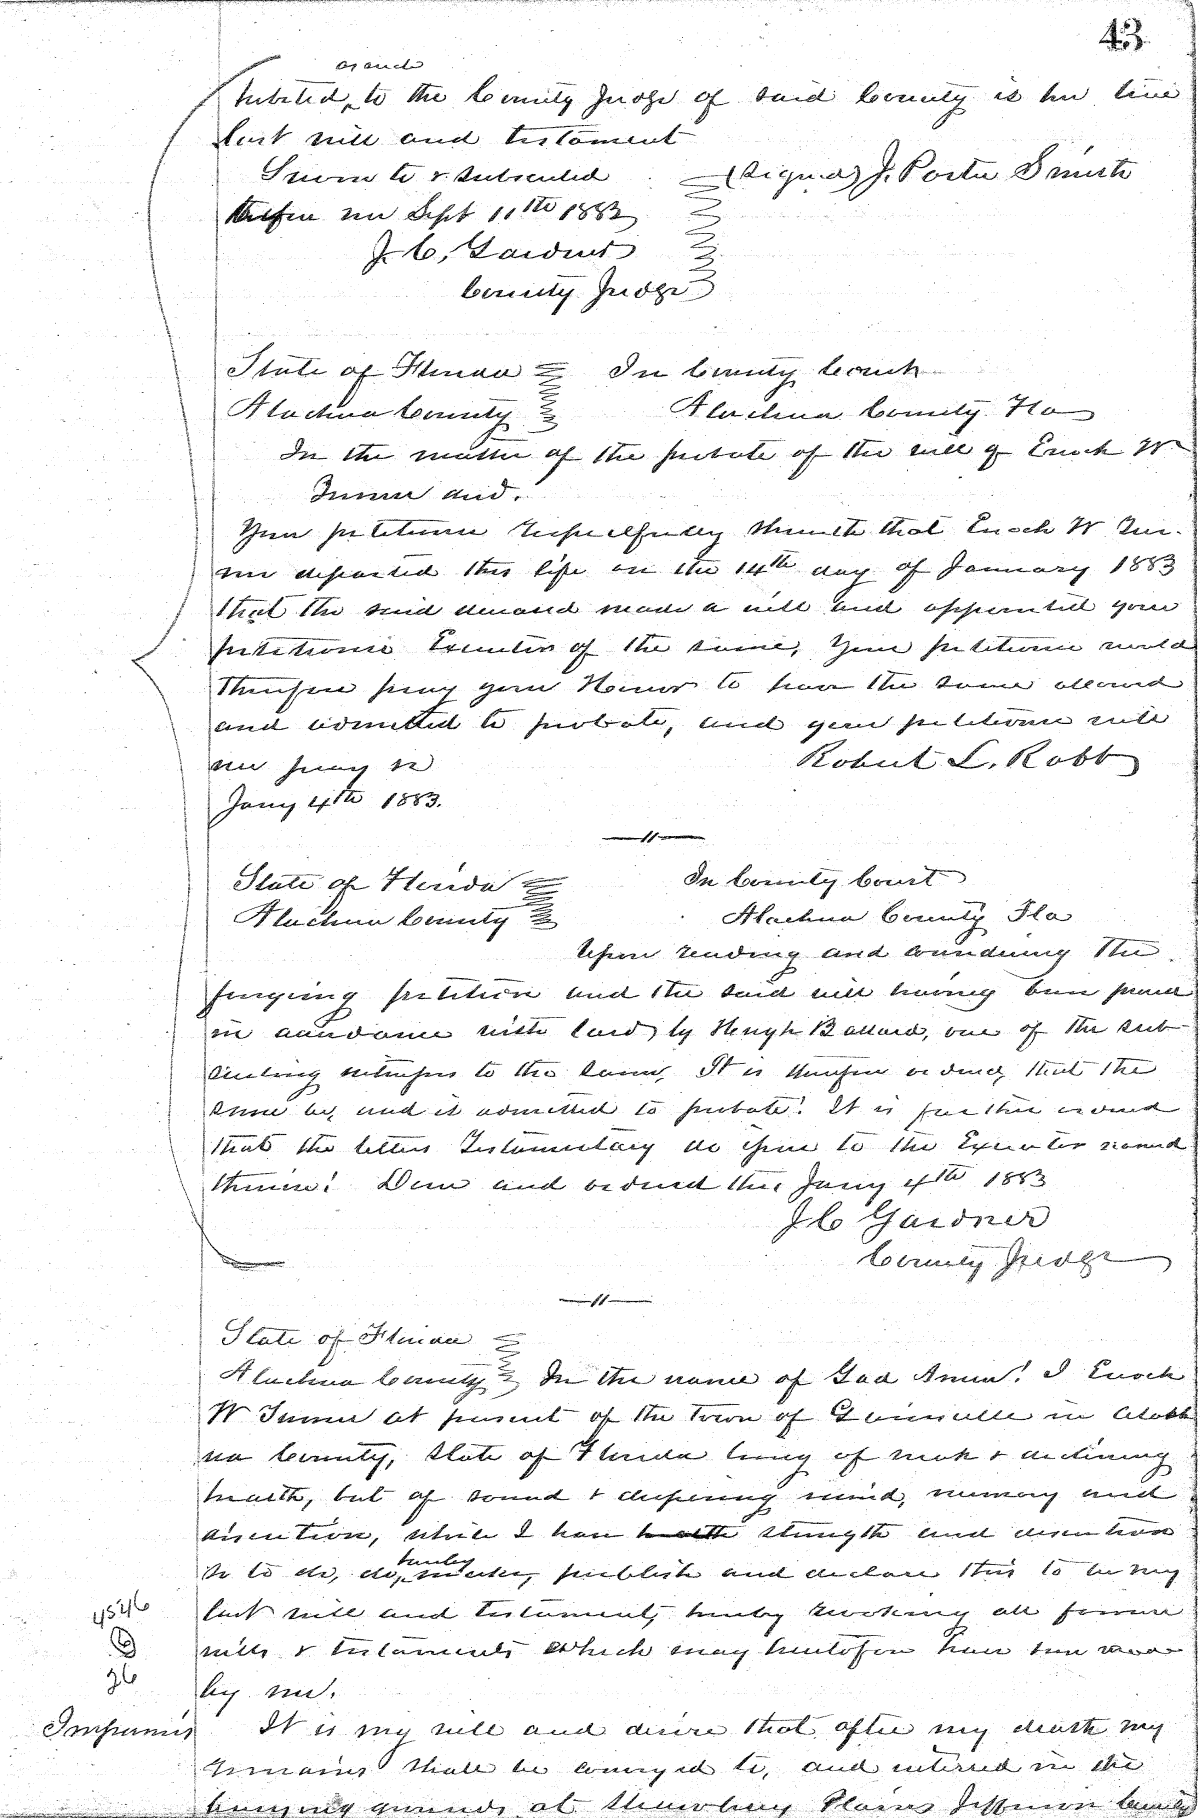 43
as and
tested, to the County Judge of said County is her true
last will and testament
Sworn to & subscribed (signed) J. Porter Smith
before me Sept 11th 1883
J. C. Gardner
County Judge
State of Florida In County Court
Alachua County Alachua County Fla
In the matter of the probate of the will of Enoch W
Turner decd.
Your petitioner respectfully showeth that Enoch W Tur-
ner departed this life on the 14th day of January 1883
that the said deceased made a will and appointed your
petitioner Executor of the same, Your petitioner would
therefore pray your Honor to have the same allowed
and admitted to probate, and your petitioner will
ever pray &c Robert L. Robb
Jany 4th 1883.
State of Florida In County Court
Alachua County Alachua County Fla
Upon reading and considering the
foregoing petition and the said will having been proved
in accordance with law, by Hugh Ballard, one of the sub-
scribing witnesses to the same, It is therefore ordered, that the
same be, and is admitted to probate! It is further ordered
that the letters Testamentary do issue to the Executor named
therein! Done and ordered this Jany 4th 1883
J C Gardner
County Judge
State of Florida
Alachua County In the name of God Amen! I Enoch
W Turner at present of the Town of Gainesville in Alach
ua County, State of Florida being of weak & declining
health, but of sound & disposing mind, memory and
discretion, while I have health strength and discretion
so to do, do, hereby make, publish and declare this to be my
last will and testament, hereby revoking all former
wills & testaments which may heretofore have been made
by me.
4546
36
Imprimis It is my will and desire that after my death my
remains shall be conveyed to, and interred in the
burying grounds at Shrewsbury Plains Jefferson County